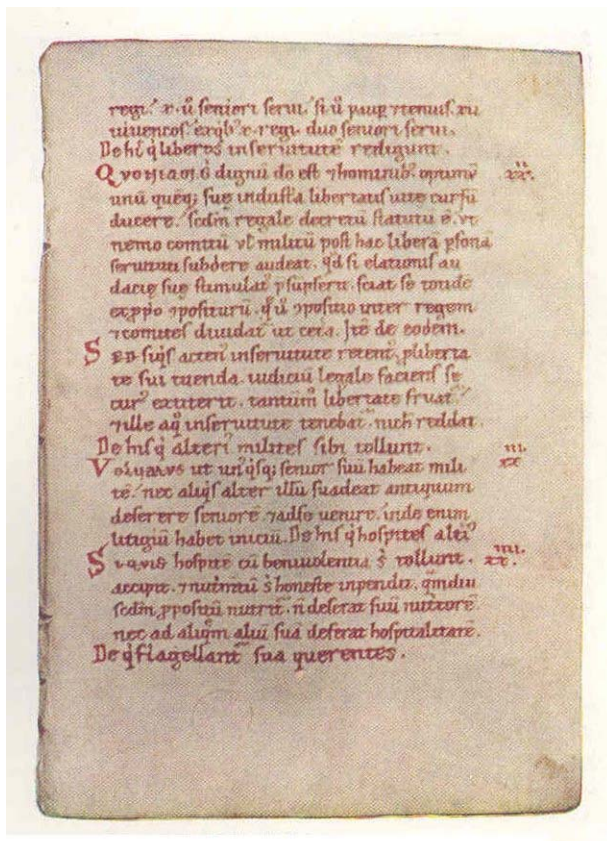 regi.' x. ũ seniori serui.' si ũ paup ⁊tenuis. xii
iuuencos.' exqb' x. regi. duo seniori serui.
De hi' q̇ liberos inseruitutẽ redigunt.
Quoniam g̊ dignũ do est ⁊hominib'. optimũ xx.ii
unũ quẽq; suę industʼa libertatis uite cursũ
ducere. scdm regale decretũ statutũ ẽ. vt
nemo comitũ vl' militũ post hac liberã psonã
seruituti subdere audeat. qd si elationis au
dacię suę stimulat' p̃sũpserit. sciat se totidẽ
exppo ꝯpositurũ. q̇ ũ ꝯpositio inter regem
⁊comites diuidat' ut cetʼa. Itẽ de eodem.
Sed siq̇s acten' inseruitute retent'. plibertʼa
te sui tuenda. iudiciũ legale faciens se
cur' extiterit. tantum̊ libertate fruat'.'
⁊ille aq̊ inseruitute tenebat'. nich' reddat.
De his q̇ alteri' milites sibi tollunt. iii. xx
Volumus ut un' q̇sq; senior suũ habeat mili
tẽ.' nec aliq̇s alter illũ suadeat antiquum
deserere seniorẽ. ⁊adse uenire. inde enim
litigiũ habet iniciũ. De his q̇ hospites alti'
Siquis hospitẽ cũ beniuolentia s' tollunt. iiii. xx.
accipit. ⁊nutʼmtũ s' honeste inpendit. qmdiu
scdm ppositũ nutrit'. ñ deserat suũ nutʼtorẽ.
nec ad aliqm aliũ suã deferat hospitalitatẽ.
De q̇ flagellant' sua querentes.